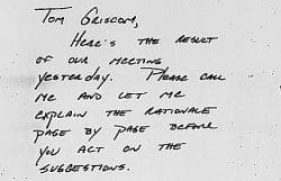 Tom Griscom,
Here's the result
of our meeting
yesterday. Please call
me and let me
explain the rationale
page by page before
you act on the
suggestions.